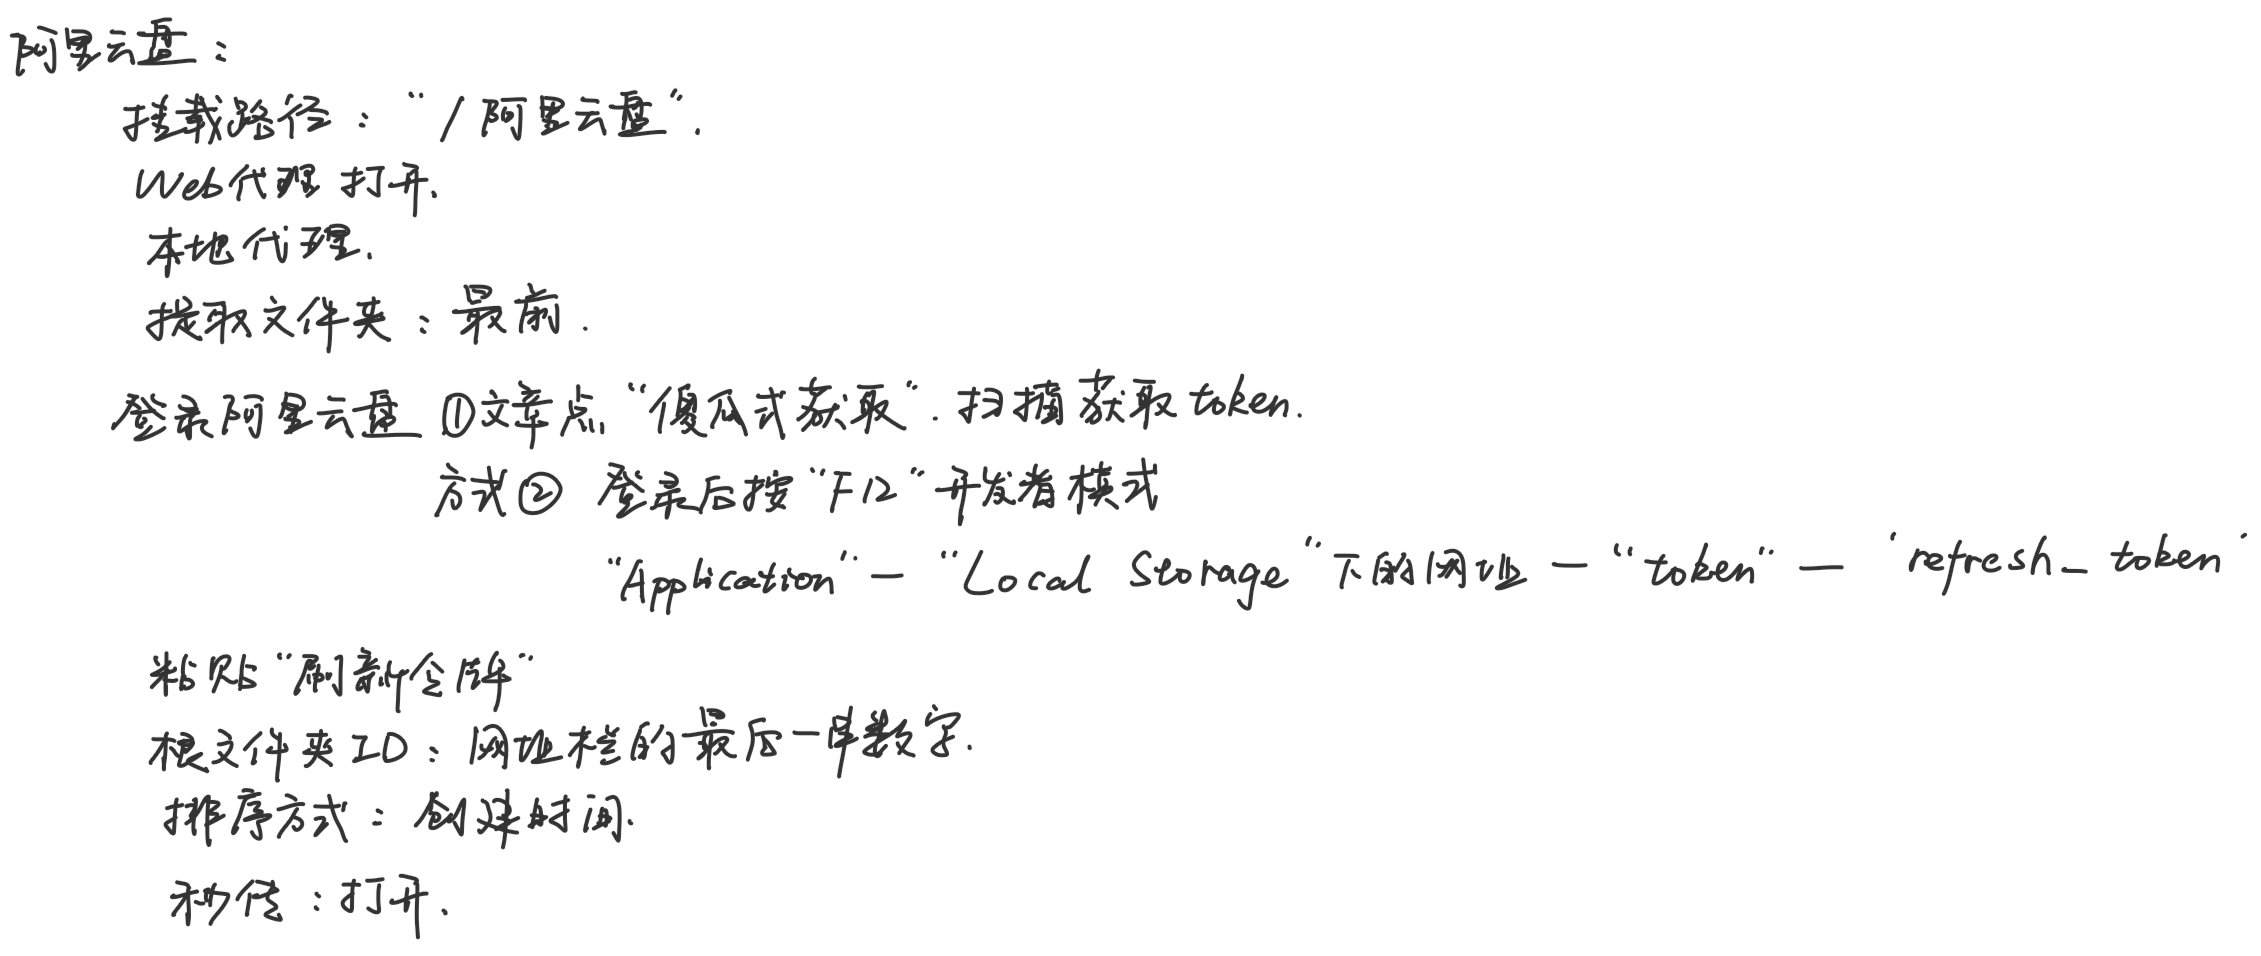 阿里云盘：
挂载路径：“/阿里云盘”.
Web代理 打开.
本地代理.
提取文件夹：最前.
登录阿里云盘 ①文章点“傻瓜式获取”. 扫描获取 token.
方式② 登录后按“F12”开发者模式
“Application”—“Local Storage”下的网址—“token”—‘refresh_token’
粘贴“刷新令牌”
根文件夹ID：网址栏的最后一串数字.
排序方式：创建时间.
秒传：打开.